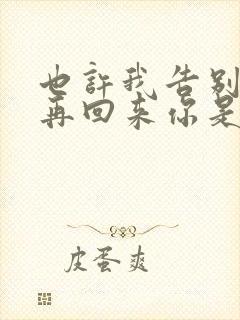 也許我告别
再回来你是
皮蛋爽